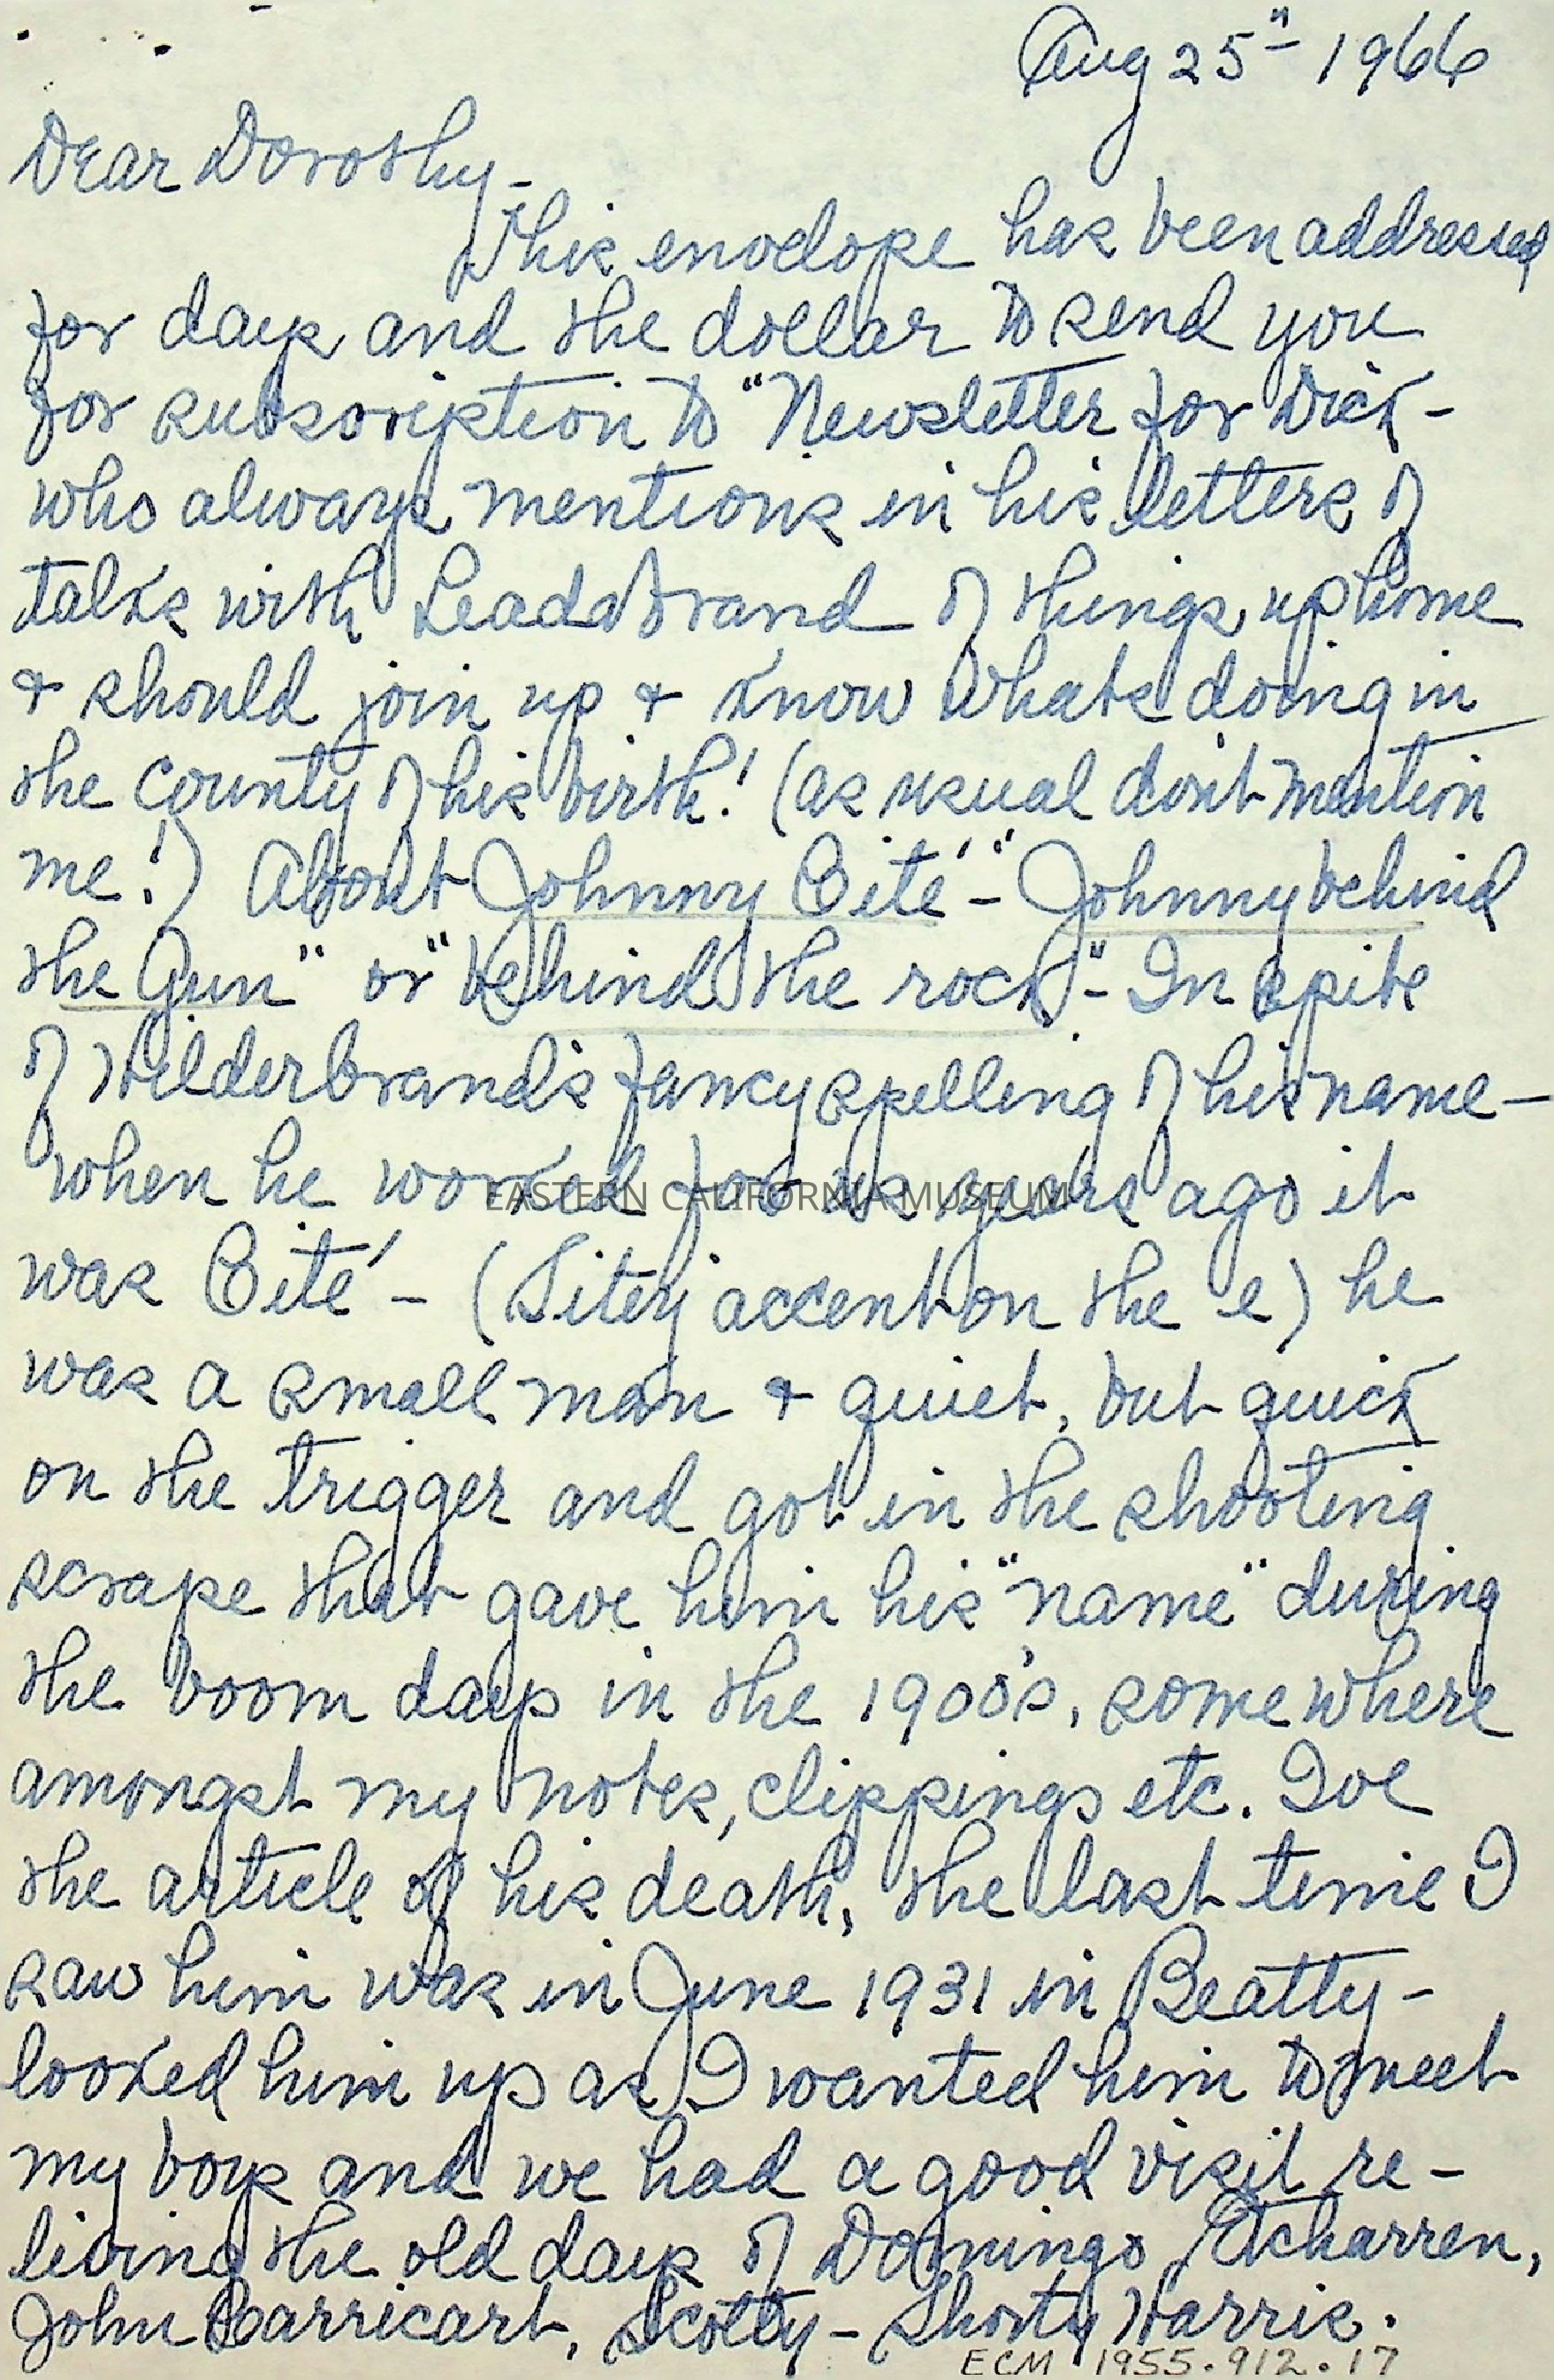 Aug 25" 1966
Dear Dorothy -
This envelope has been addressed
for days and the dollar to send you
for subscription to "Newsletter for Dick -
who always mentions in his letters of
talks with Leadabrand of things up home
& should join up & know whats doing in
the county of his birth! (as usual don't mention
me!) About Johnny Cité - "Johnny behind
the Gun" or "behind the rock" - In spite
of Hilderbrand's fancy spelling of his name -
when he worked for us years ago it
EASTERN CALIFORNIA MUSEUM
was Cité - (Sitey accent on the e) he
was a small man & quiet, but quick
on the trigger and got in the shooting
scrape that gave him his "name" during
the boom days in the 1900's, somewhere
amongst my notes, clippings etc. Ive
the article of his death, the last time I
saw him was in June 1931 in Beatty -
looked him up as I wanted him to meet
my boys and we had a good visit re-
living the old days of Domingo Etcharren,
John Barricart, Scotty - Shorty Harris.
ECM 1955.912.17